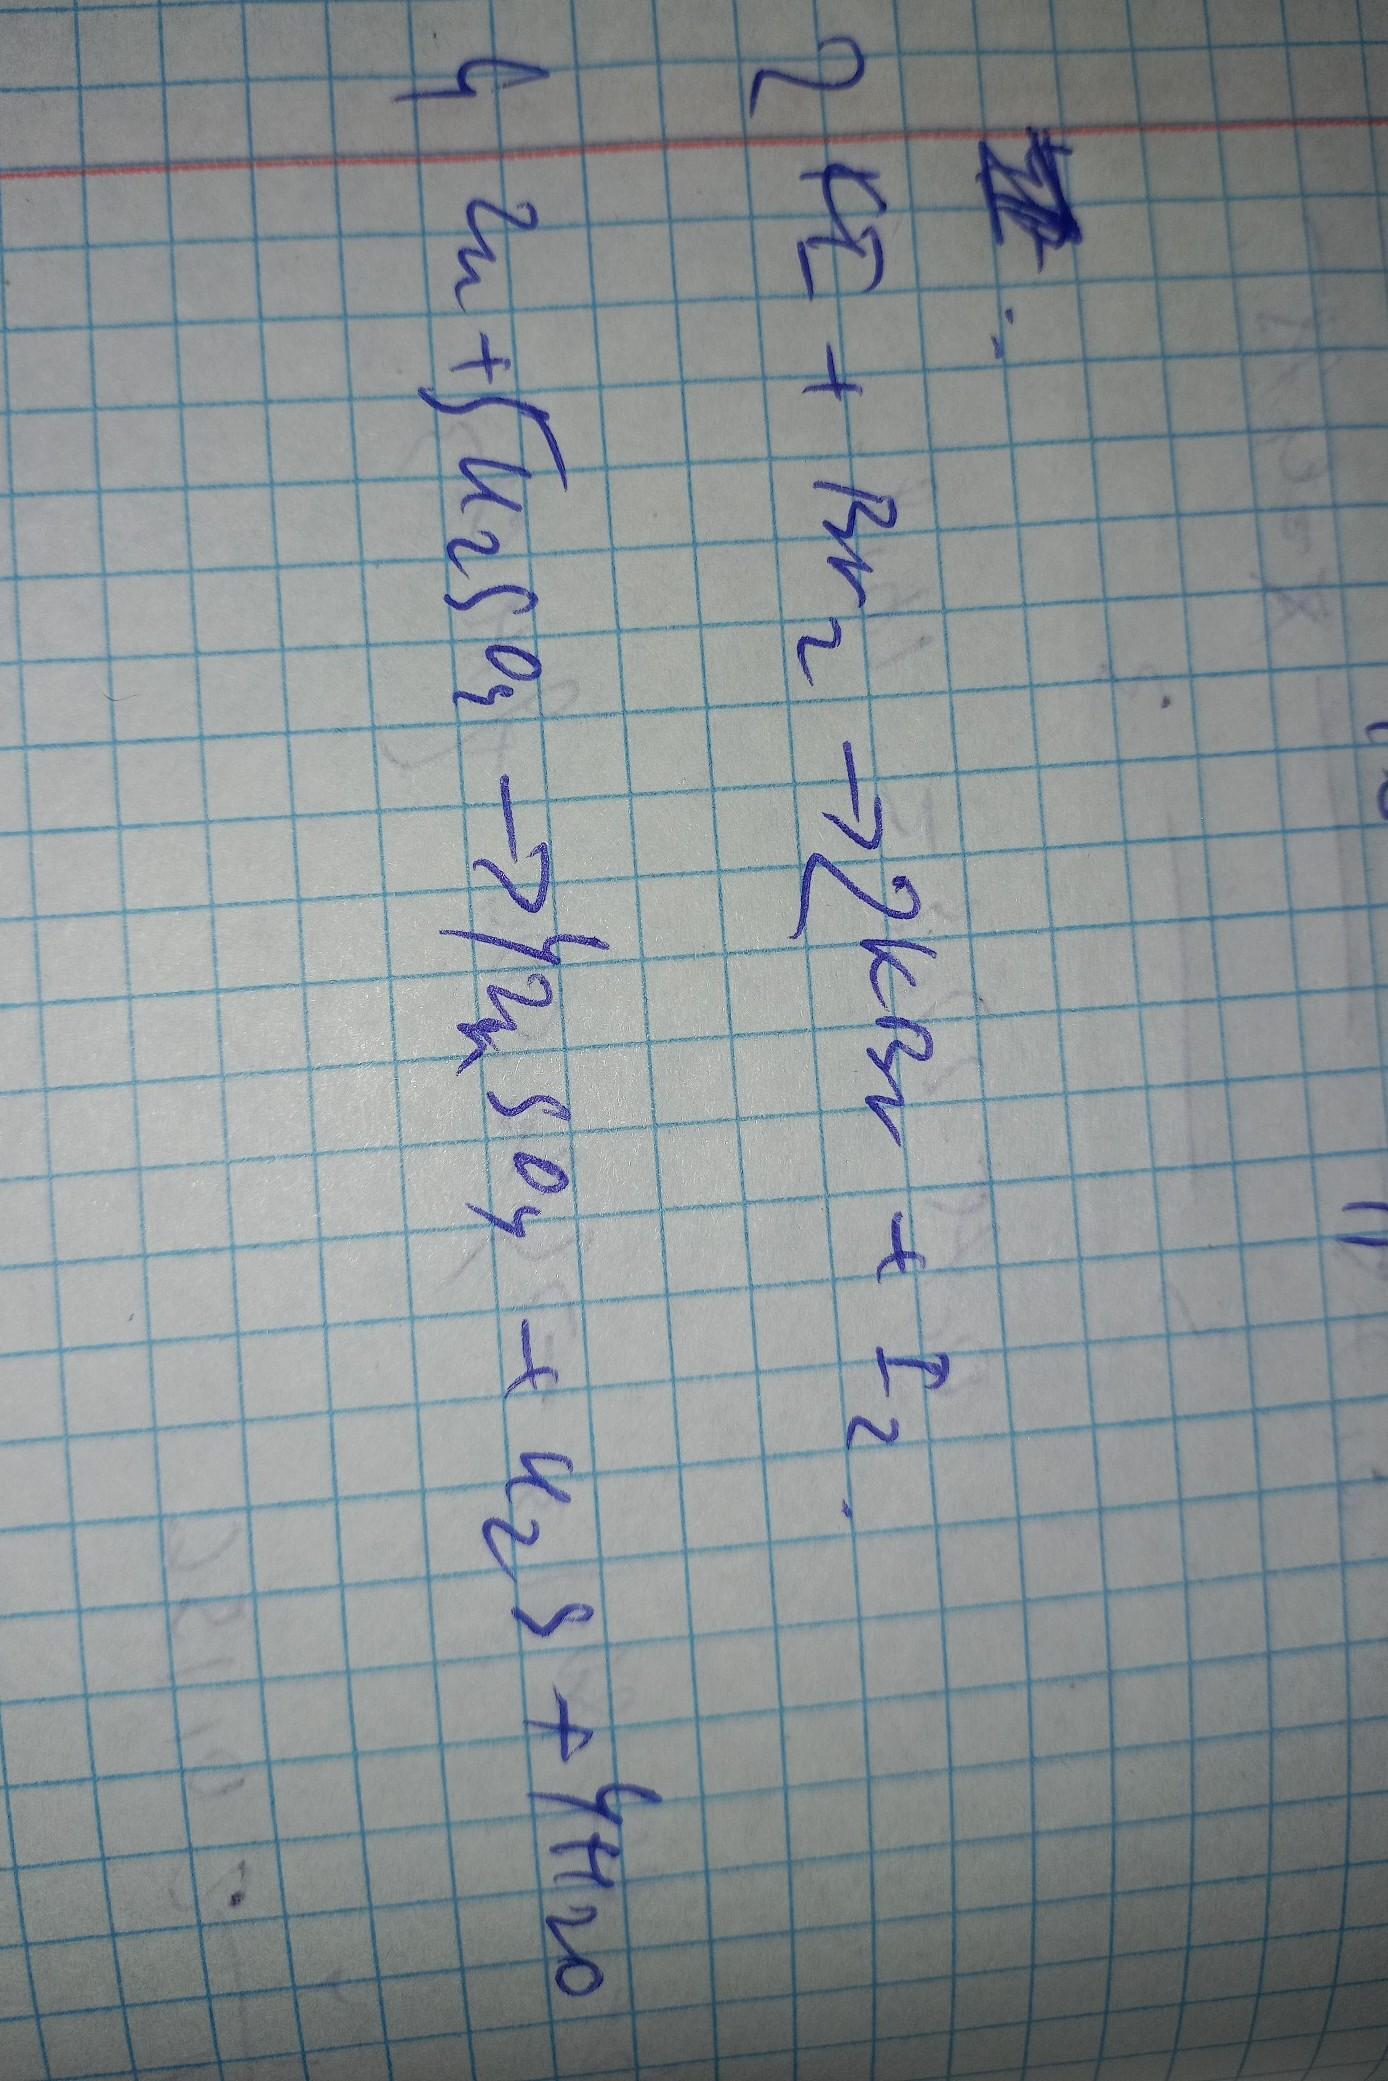 2 KI + Br2 → 2KBr + I2.
4 Zn + 5H2SO4 → 4ZnSO4 + H2S + 4H2O